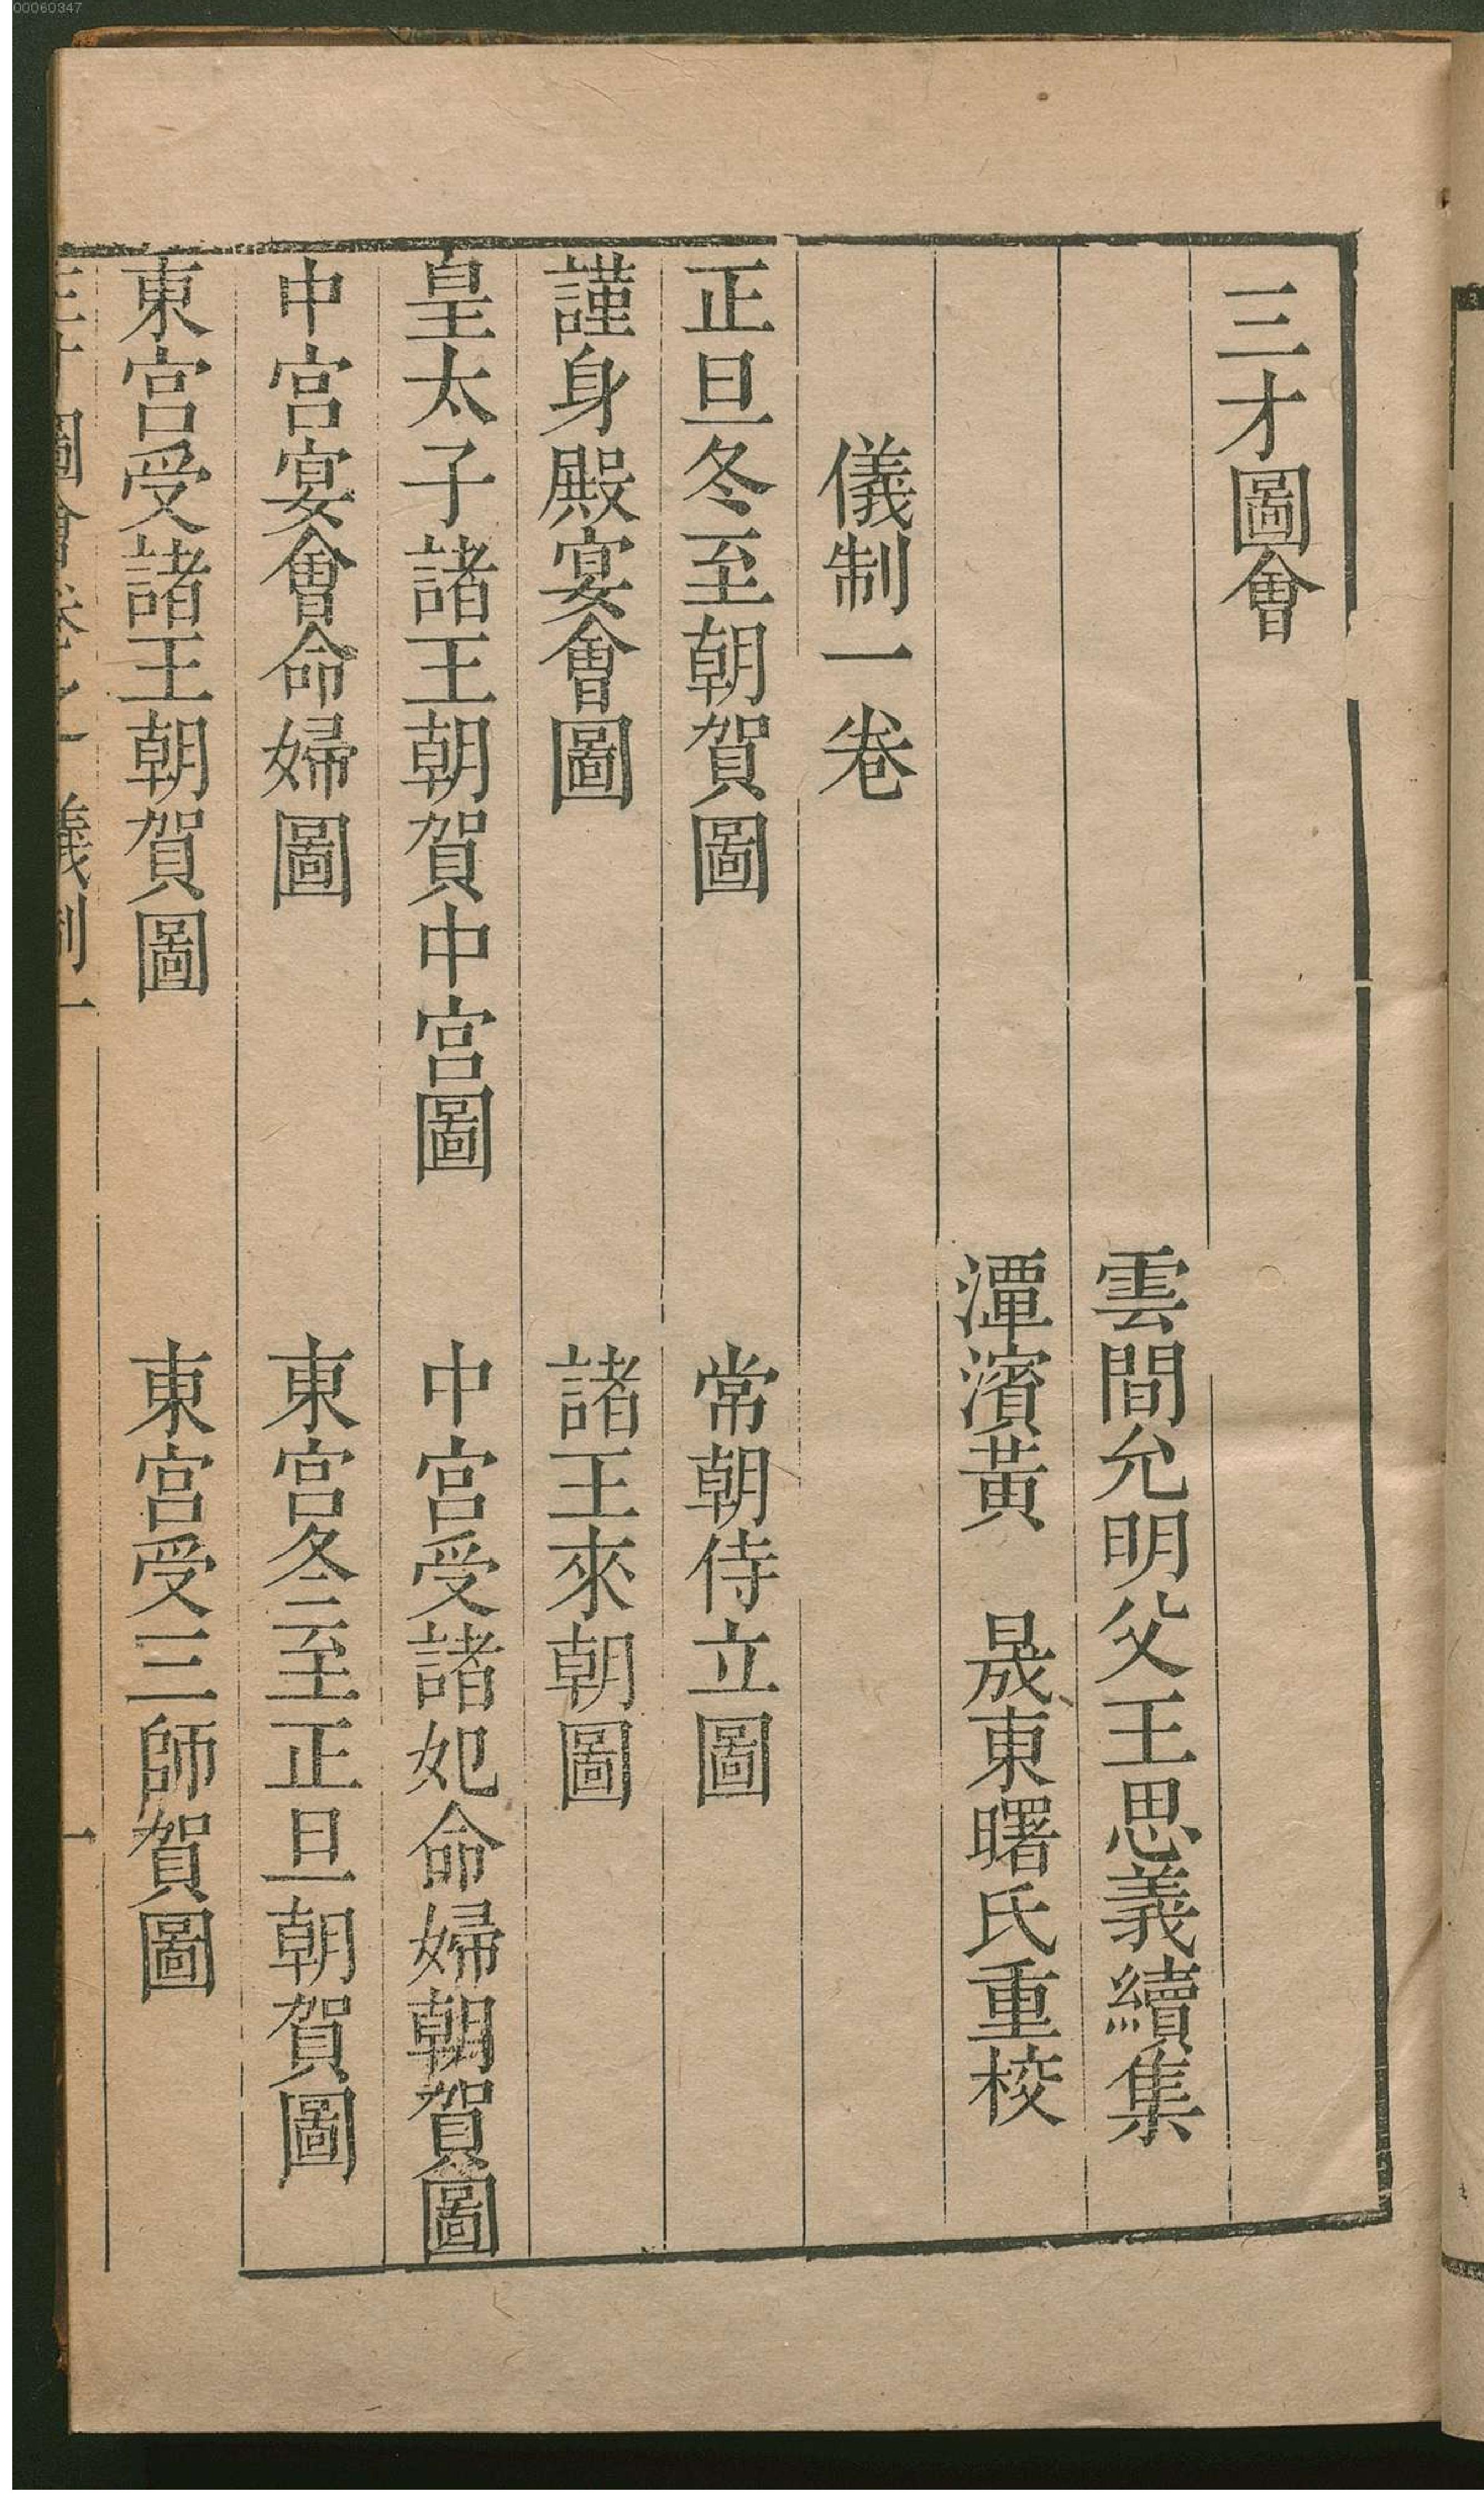 00060347
三才圖會
雲間允明父王思義續集
潭濱黃　晟東曙氏重校
儀制一卷
正旦冬至朝賀圖　常朝侍立圖
謹身殿宴會圖　諸王來朝圖
皇太子諸王朝賀中宮圖　中宮受諸妃命婦朝賀圖
中宮宴會命婦圖　東宮冬至正旦朝賀圖
東宮受諸王朝賀圖　東宮受三師賀圖
三才圖會卷之一儀制一　一